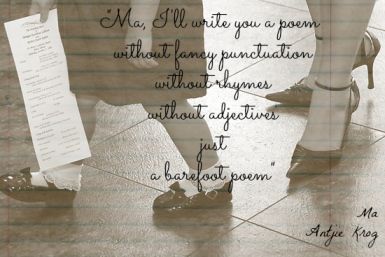 "Ma, I'll write you a poem
without fancy punctuation
without rhymes
without adjectives
just
a barefoot poem"
Ma
Antjie Krog